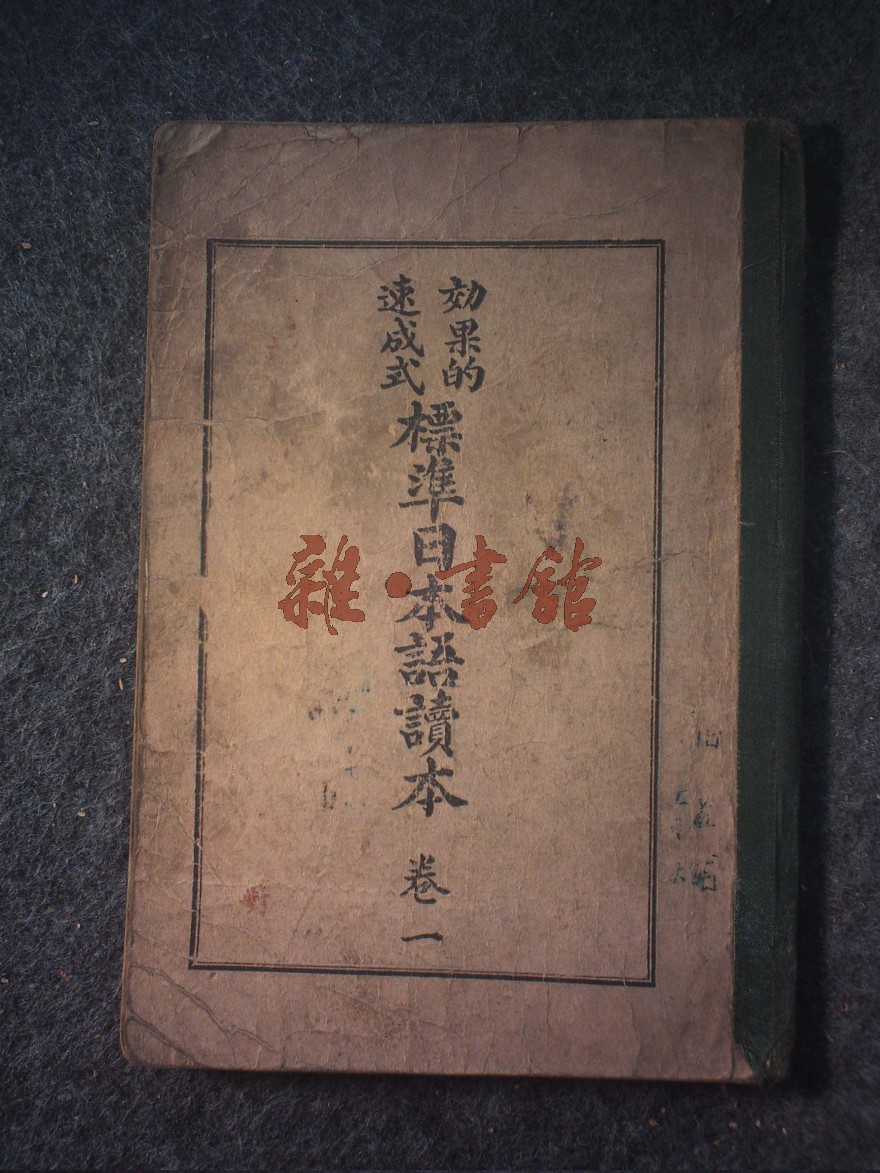 効果的
速成式
標準日本語讀本
卷一
雜·書舘